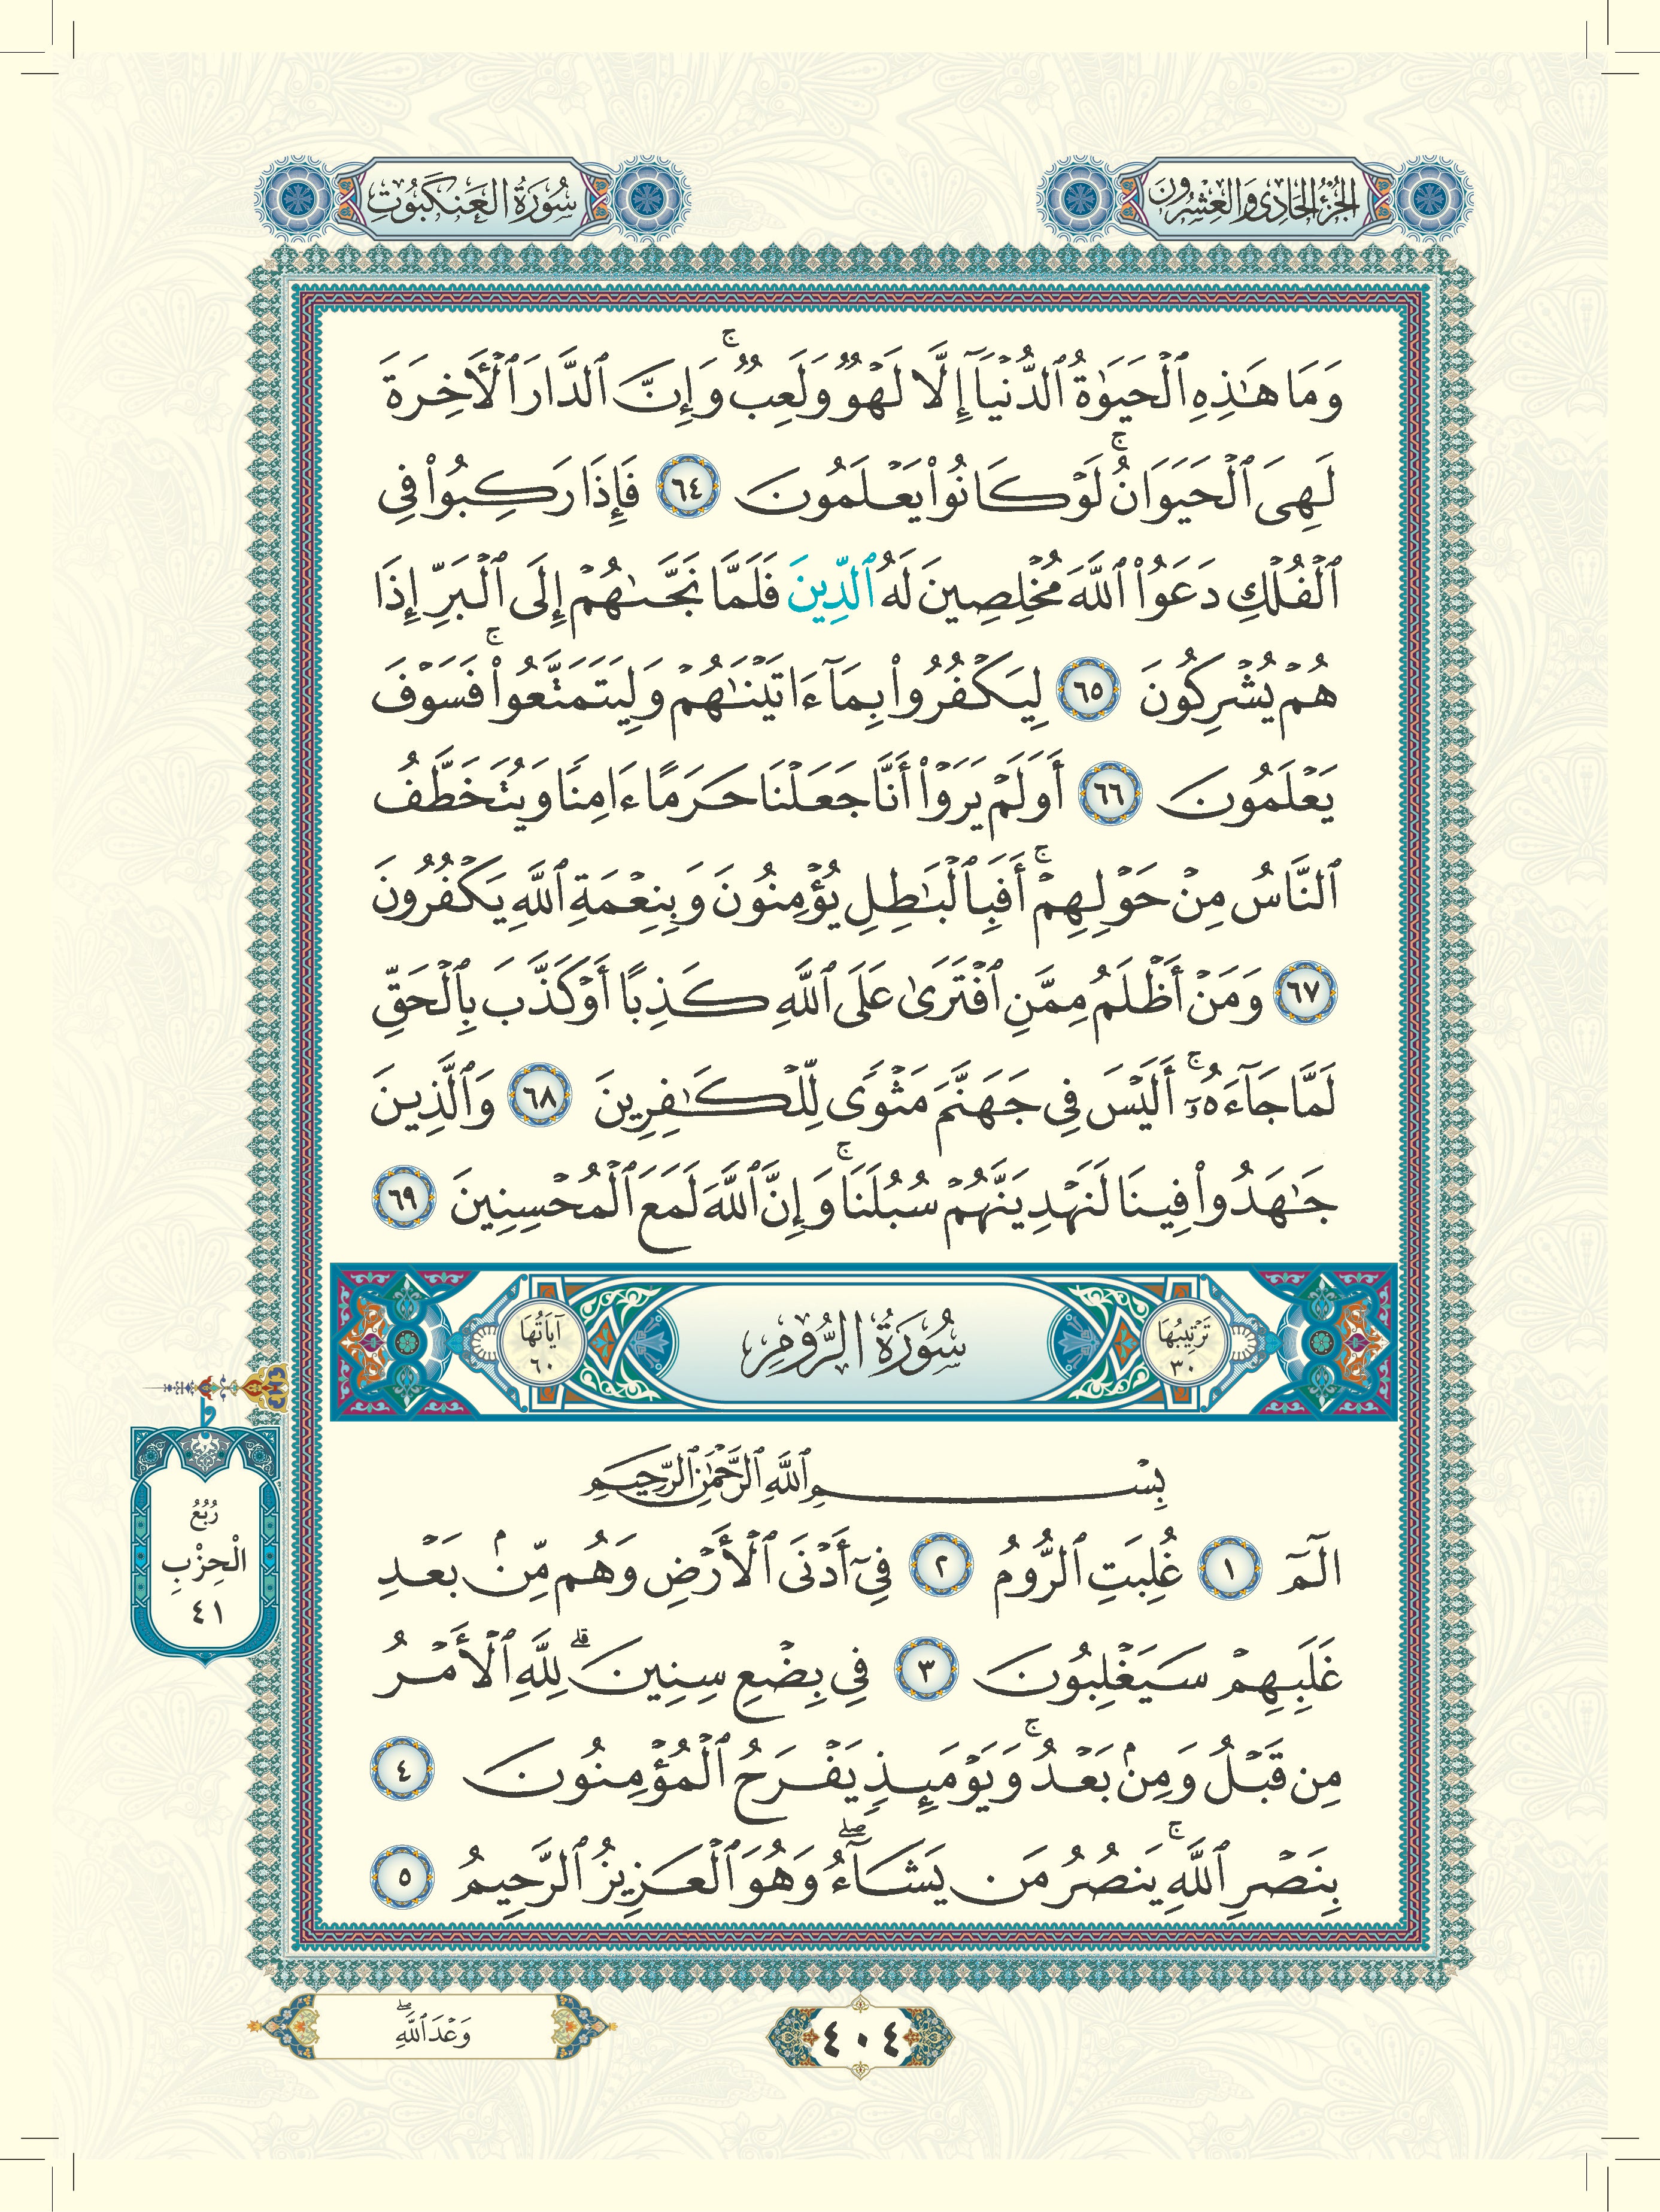 الجزء الحادي والعشرون
سورة العنكبوت
وَمَا هَٰذِهِ ٱلْحَيَوٰةُ ٱلدُّنْيَآ إِلَّا لَهْوٌ وَلَعِبٌ ۚ وَإِنَّ ٱلدَّارَ ٱلْأَخِرَةَ
لَهِىَ ٱلْحَيَوَانُ ۚ لَوْ كَانُوا۟ يَعْلَمُونَ ٦٤ فَإِذَا رَكِبُوا۟ فِى
ٱلْفُلْكِ دَعَوُا۟ ٱللَّهَ مُخْلِصِينَ لَهُ ٱلدِّينَ فَلَمَّا نَجَّىٰهُمْ إِلَى ٱلْبَرِّ إِذَا
هُمْ يُشْرِكُونَ ٦٥ لِيَكْفُرُوا۟ بِمَآ ءَاتَيْنَٰهُمْ وَلِيَتَمَتَّعُوا۟ ۚ فَسَوْفَ
يَعْلَمُونَ ٦٦ أَوَلَمْ يَرَوْا۟ أَنَّا جَعَلْنَا حَرَمًا ءَامِنًا وَيُتَخَطَّفُ
ٱلنَّاسُ مِنْ حَوْلِهِمْ ۚ أَفَبِٱلْبَٰطِلِ يُؤْمِنُونَ وَبِنِعْمَةِ ٱللَّهِ يَكْفُرُونَ
٦٧ وَمَنْ أَظْلَمُ مِمَّنِ ٱفْتَرَىٰ عَلَى ٱللَّهِ كَذِبًا أَوْ كَذَّبَ بِٱلْحَقِّ
لَمَّا جَآءَهُۥٓ ۚ أَلَيْسَ فِى جَهَنَّمَ مَثْوًى لِّلْكَٰفِرِينَ ٦٨ وَٱلَّذِينَ
جَٰهَدُوا۟ فِينَا لَنَهْدِيَنَّهُمْ سُبُلَنَا ۚ وَإِنَّ ٱللَّهَ لَمَعَ ٱلْمُحْسِنِينَ ٦٩
تَرْتِيبُهَا ٣٠
سُورَةُ الرُّومِ
آيَاتُهَا ٦٠
بِسْمِ ٱللَّهِ ٱلرَّحْمَٰنِ ٱلرَّحِيمِ
الٓمٓ ١ غُلِبَتِ ٱلرُّومُ ٢ فِىٓ أَدْنَى ٱلْأَرْضِ وَهُم مِّنۢ بَعْدِ
غَلَبِهِمْ سَيَغْلِبُونَ ٣ فِى بِضْعِ سِنِينَ ۗ لِلَّهِ ٱلْأَمْرُ
مِن قَبْلُ وَمِنۢ بَعْدُ ۚ وَيَوْمَئِذٍ يَفْرَحُ ٱلْمُؤْمِنُونَ ٤
بِنَصْرِ ٱللَّهِ ۚ يَنصُرُ مَن يَشَآءُ ۖ وَهُوَ ٱلْعَزِيزُ ٱلرَّحِيمُ ٥
رُبُعُ
الْحِزْبِ
٤١
وَعْدَ ٱللَّهِ ۖ
٤٠٤